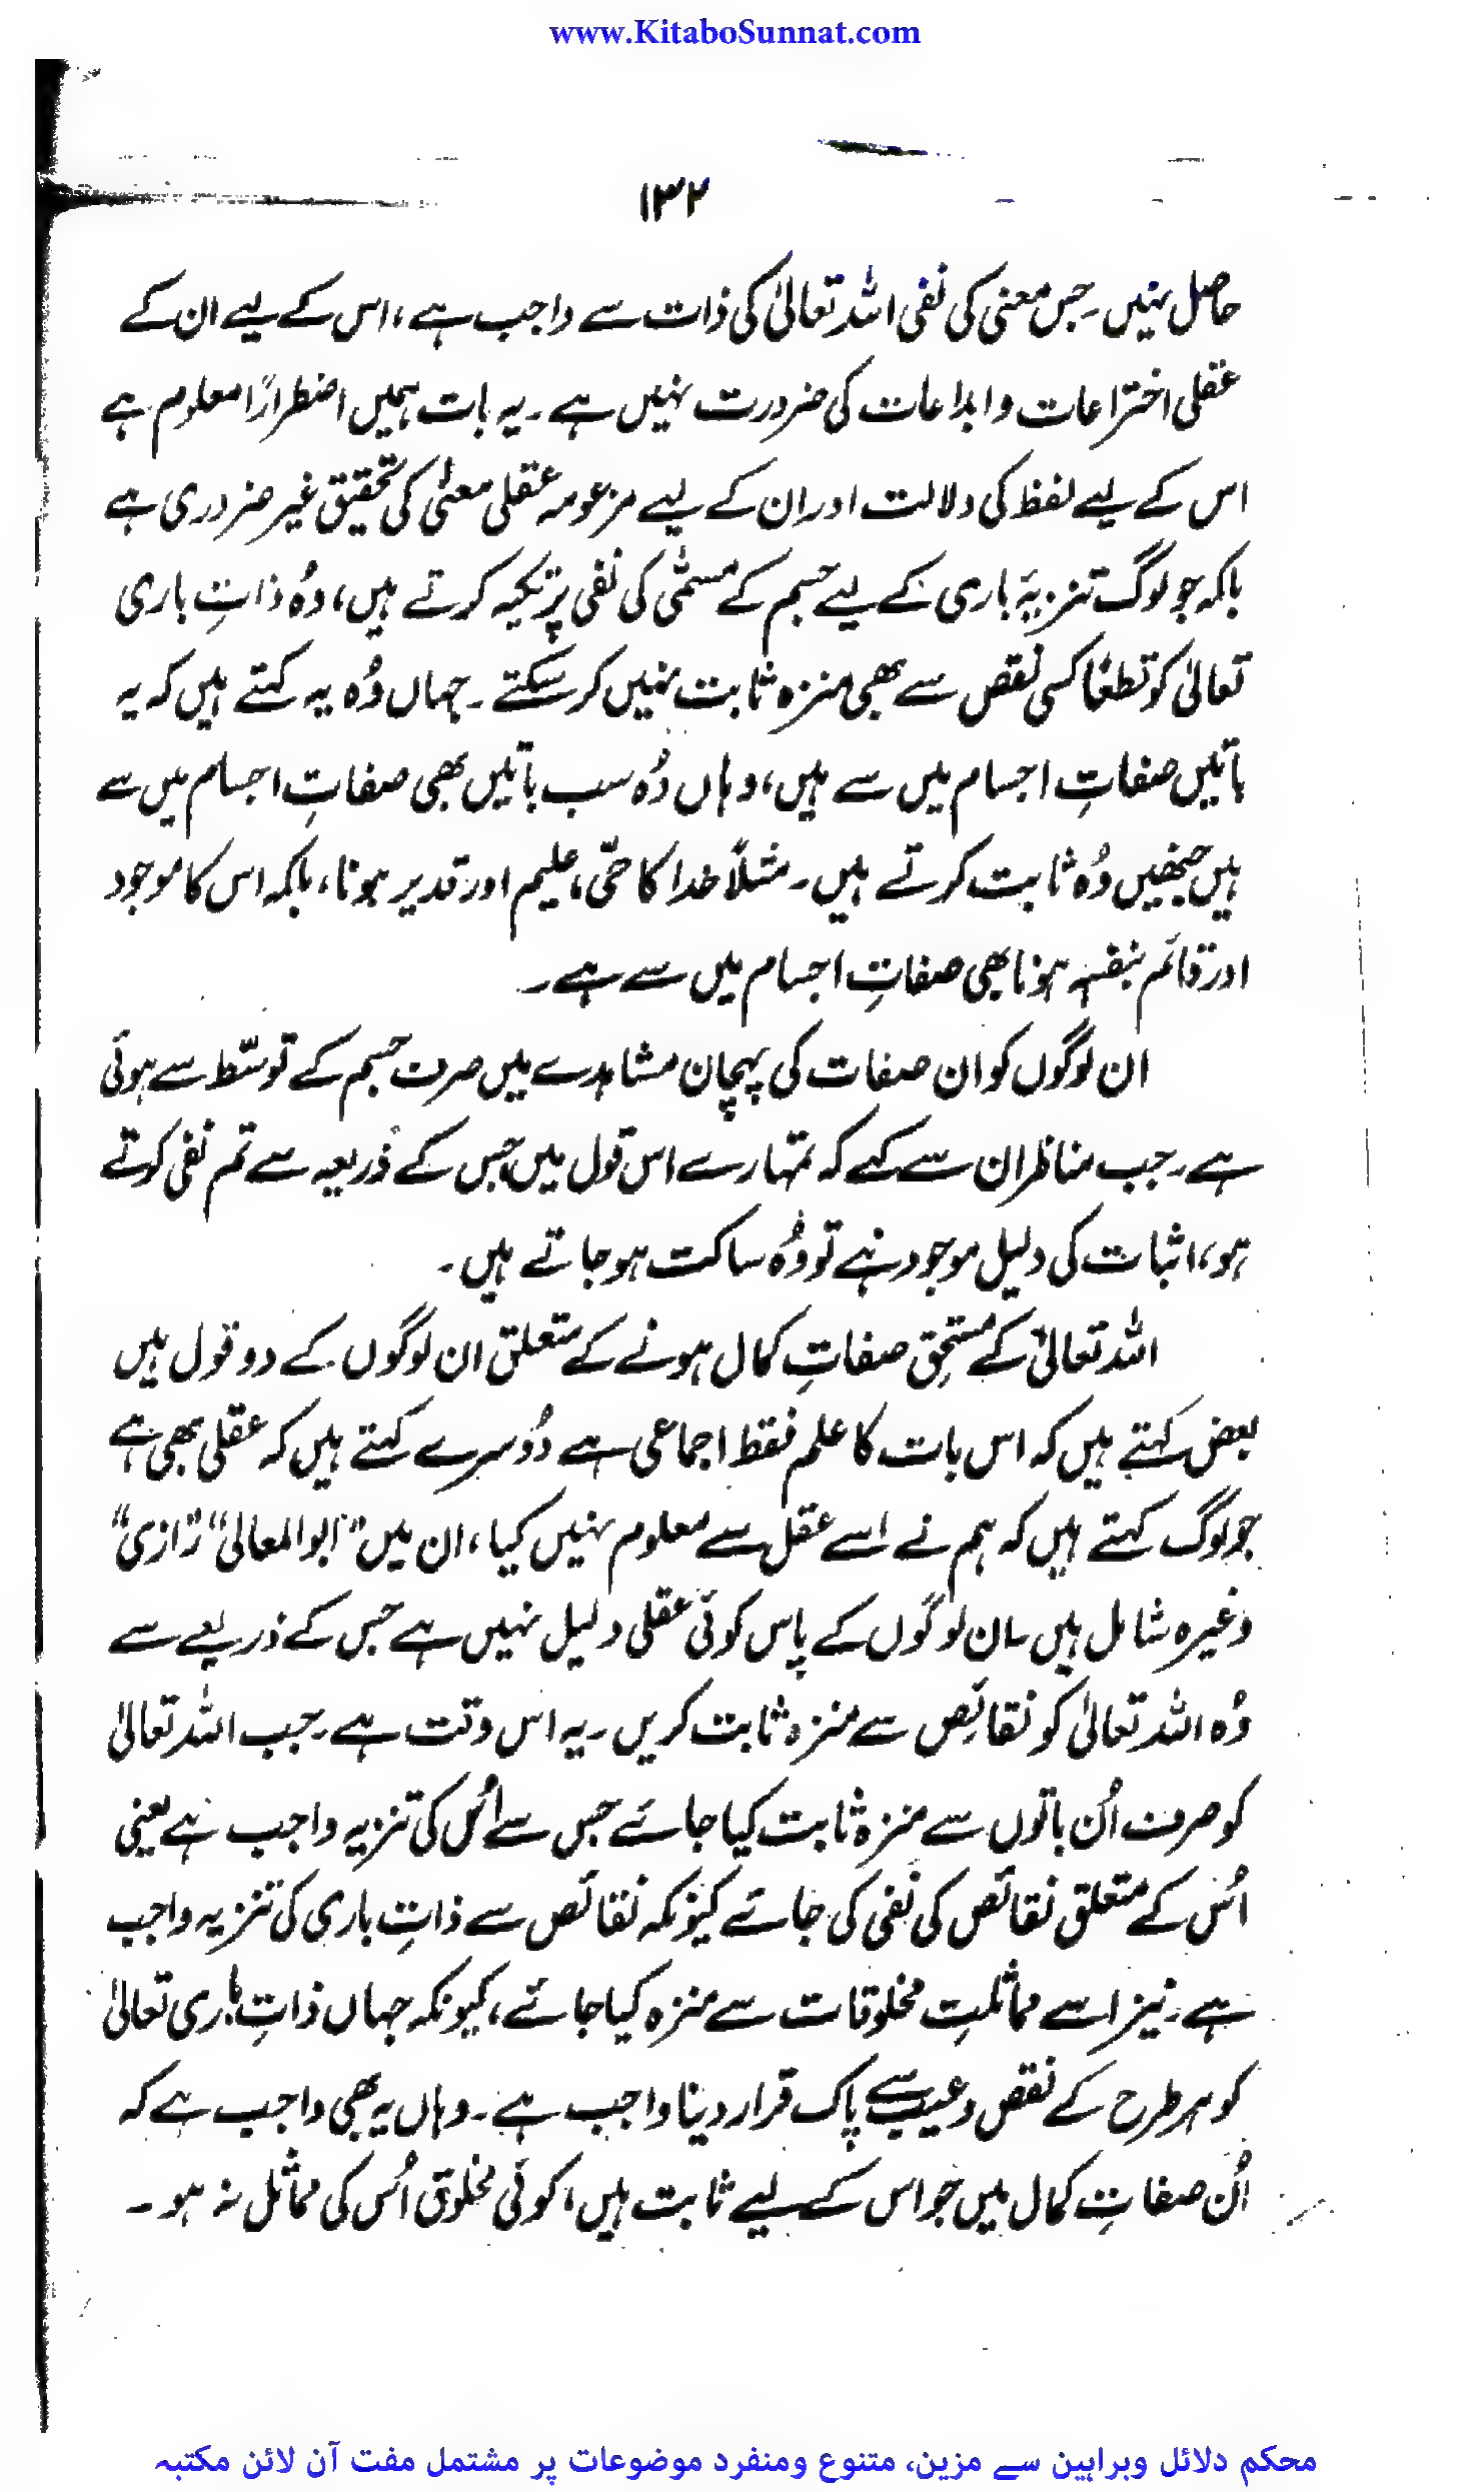 www.KitaboSunnat.com
۱۳۲
حاصل نہیں۔ جس معنی کی نفی اللہ تعالیٰ کی ذات سے واجب ہے، اس کے لیے ان کے
عقلی اختراعات و ابداعات کی ضرورت نہیں ہے۔ یہ بات ہمیں اضطرارًا معلوم ہے
اس کے لیے لفظ کی دلالت اور ان کے لیے مزعومہ عقلی معنیٰ کی تحقیق غیر ضروری ہے
بلکہ جو لوگ تنزیہٴ باری کے لیے جسم کے مسمّٰی کی نفی پر تکیہ کرتے ہیں، وُہ ذاتِ باری
تعالیٰ کو قطعًا کسی نقص سے بھی منزہ ثابت نہیں کر سکتے۔ جہاں وُہ یہ کہتے ہیں کہ یہ
باتیں صفاتِ اجسام میں سے ہیں، وہاں وُہ سب باتیں بھی صفاتِ اجسام میں سے
ہیں جنھیں وُہ ثابت کرتے ہیں۔ مثلاً خدا کا حّی، علیم اور قدیر ہونا، بلکہ اس کا موجود
اور قائم بنفسہٖ ہونا بھی صفاتِ اجسام میں سے ہے۔
ان لوگوں کو ان صفات کی پہچان مشاہدے میں صرف جسم کے توسّط سے ہوئی
ہے۔ جب مناظر ان سے کہے کہ تمہارے اس قول میں جس کے ذریعہ سے تم نفی کرتے
ہو، اثبات کی دلیل موجود ہے تو وُہ ساکت ہو جاتے ہیں۔
اللہ تعالیٰ کے مستحق صفاتِ کمال ہونے کے متعلق ان لوگوں کے دو قول ہیں
بعض کہتے ہیں کہ اس بات کا علم فقط اجماعی ہے دُوسرے کہتے ہیں کہ عقلی بھی ہے
جو لوگ کہتے ہیں کہ ہم نے اسے عقل سے معلوم نہیں کیا، ان میں "ابوالمعالی" "رازی"
وغیرہ شامل ہیں۔ ان لوگوں کے پاس کوئی عقلی دلیل نہیں ہے جس کے ذریعے سے
وُہ اللہ تعالیٰ کو نقائص سے منزہ ثابت کریں۔ یہ اس وقت ہے۔ جب اللہ تعالیٰ
کو صرف اُن باتوں سے منزہ ثابت کیا جائے جس سے اُس کی تنزیہ واجب ہے یعنی
اُس کے متعلق نقائص کی نفی کی جائے کیونکہ نقائص سے ذاتِ باری کی تنزیہ واجب
ہے۔ نیز اسے مماثلتِ مخلوقات سے منزہ کیا جائے، کیونکہ جہاں ذاتِ باری تعالیٰ
کو ہر طرح کے نقص و عیب سے پاک قرار دینا واجب ہے۔ وہاں یہ بھی واجب ہے کہ
اُن صفاتِ کمال میں جو اس کے لیے ثابت ہیں، کوئی مخلوق اُس کی مماثل نہ ہو۔
محکم دلائل وبراہین سے مزین، متنوع ومنفرد موضوعات پر مشتمل مفت آن لائن مکتبہ